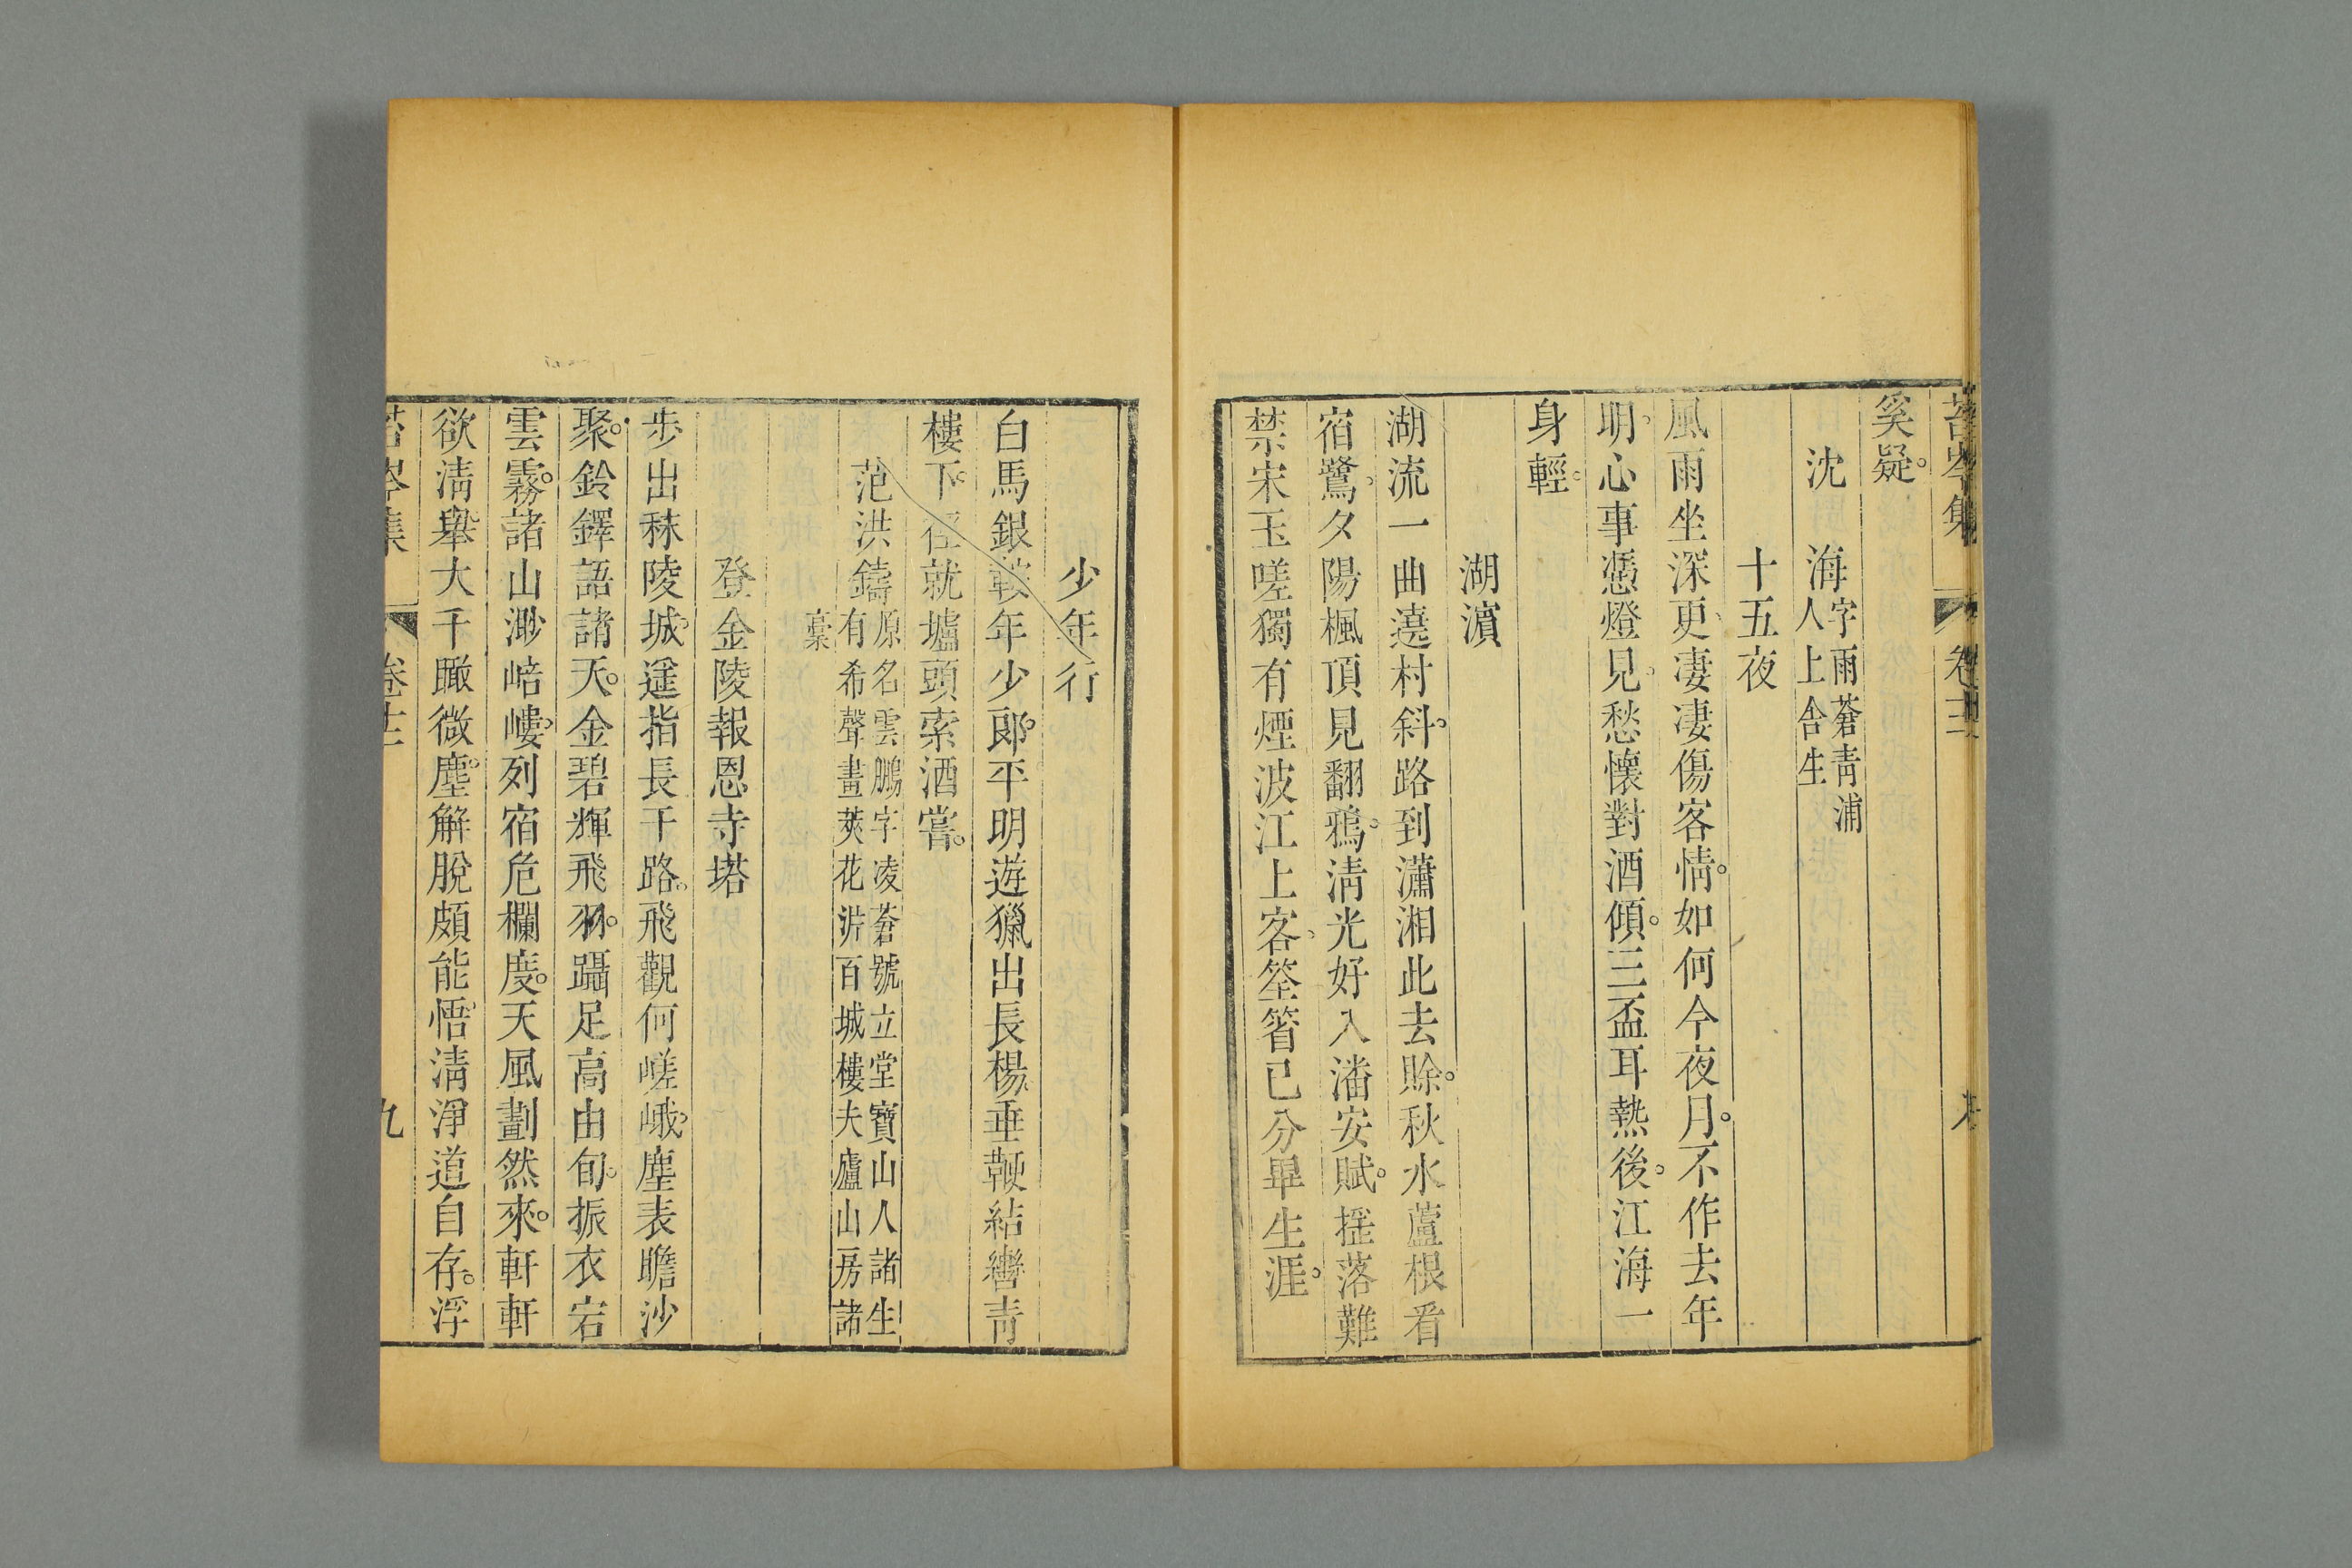 苔岑集 卷十二
奚疑。
沈海字雨蒼青浦人上舍生
十五夜
風雨坐深更、凄凄傷客情。如何今夜月。不作去年
明、心事憑燈見、愁懷對酒傾。三盃耳熱後。江海一
身輕。
湖濱
湖流一曲遶村斜。路到瀟湘此去賒。秋水蘆根看
宿鷺、夕陽楓頂見翻鴉。清光好入潘安賦。摇落難
禁宋玉嗟獨有煙波江上客、筌箵已分畢生涯。
少年行
白馬銀鞍年少郎。平明遊獵出長楊、垂鞭結轡青
樓下。徑就壚頭索酒嘗。
范洪鑄原名雲鵬字凌蒼號立堂寶山人諸生有希聲畫莢花淋百城樓夫廬山房諸稾
登金陵報恩寺塔
步出秣陵城、遥指長干路。飛觀何嵯峨、塵表瞻沙
聚。鈴鐸語諸天。金碧輝飛羽。躡足高由旬。振衣宕
雲霧。諸山渺峿嶁、列宿危欄度。天風劃然來。軒軒
欲清舉、大千瞰微塵。解脫頗能悟、清淨道自存。浮
苔岑集 卷十二 九